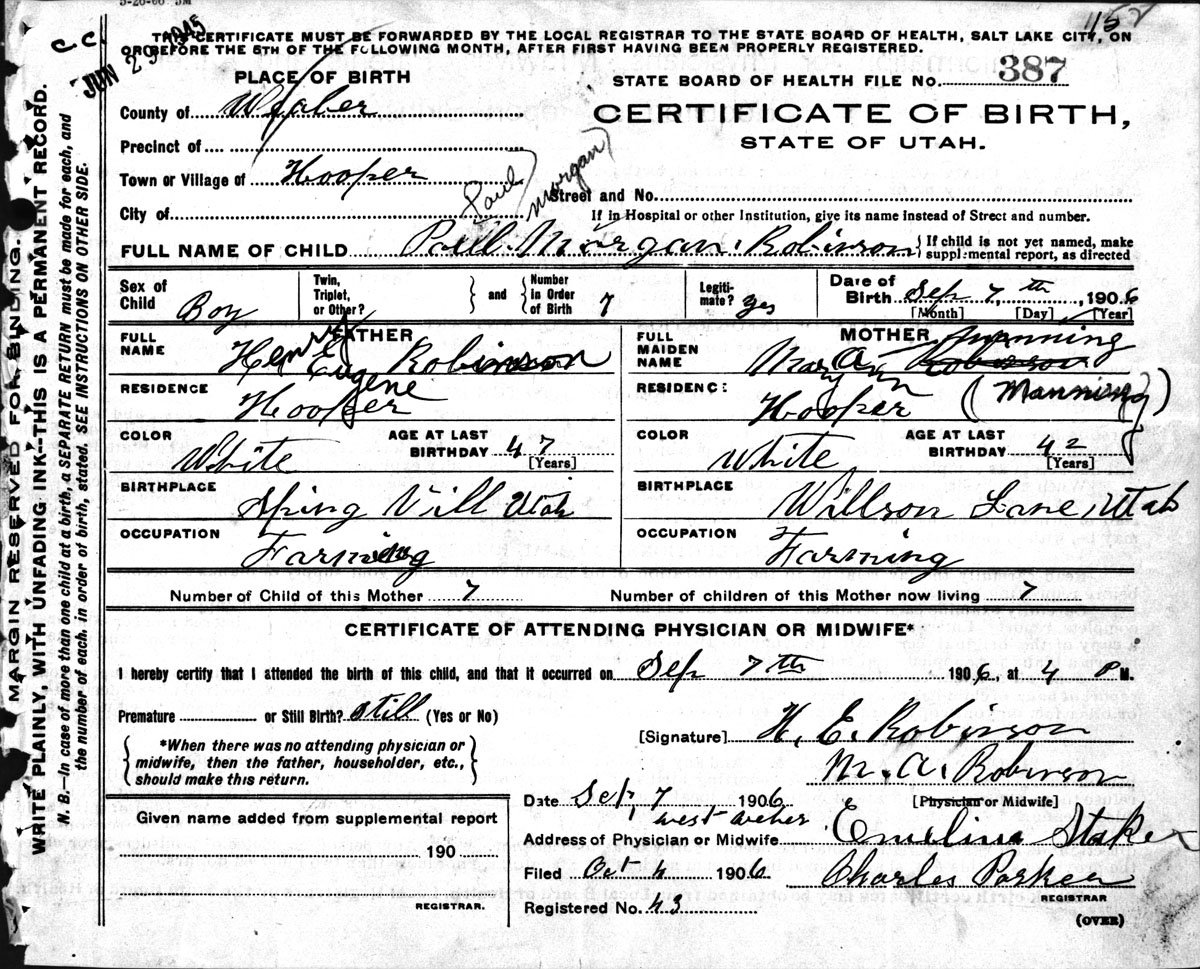 3-26-06 5M
115
C.C.
JUN 29 1945
THIS CERTIFICATE MUST BE FORWARDED BY THE LOCAL REGISTRAR TO THE STATE BOARD OF HEALTH, SALT LAKE CITY, ON
OR BEFORE THE 5TH OF THE FOLLOWING MONTH, AFTER FIRST HAVING BEEN PROPERLY REGISTERED.
MARGIN RESERVED FOR BINDING.
WRITE PLAINLY, WITH UNFADING INK--THIS IS A PERMANENT RECORD.
N. B.—In case of more than one child at a birth, a SEPARATE RETURN must be made for each, and
the number of each, in order of birth, stated. SEE INSTRUCTIONS ON OTHER SIDE.
PLACE OF BIRTH
County of Weber
Precinct of
Town or Village of Hooper
City of
STATE BOARD OF HEALTH FILE No. 387
CERTIFICATE OF BIRTH,
STATE OF UTAH.
Paul Morgan
Street and No.
If in Hospital or other Institution, give its name instead of Street and number.
FULL NAME OF CHILD Paul Morgan Robinson { If child is not yet named, make
supplemental report, as directed
Sex of Child Boy
Twin, Triplet, or Other?
and
Number in Order of Birth 7
Legiti- mate? Yes
Date of Birth Sep 7, th, 1906
[Month] [Day] [Year]
FATHER
FULL NAME Henry E Robinson
Eugene
RESIDENCE Hooper
COLOR White AGE AT LAST BIRTHDAY 47 [Years]
BIRTHPLACE Sping Vill Utah
OCCUPATION Farming
MOTHER
FULL MAIDEN NAME Mary Ann Robinson Manning
RESIDENCE: Hooper (Manning)
COLOR White AGE AT LAST BIRTHDAY 42 [Years]
BIRTHPLACE Willson Lane, Utah
OCCUPATION Farming
Number of Child of this Mother 7 Number of children of this Mother now living 7
CERTIFICATE OF ATTENDING PHYSICIAN OR MIDWIFE*
I hereby certify that I attended the birth of this child, and that it occurred on Sep 7th 1906, at 4 P M.
Premature or Still Birth? Still (Yes or No)
*When there was no attending physician or
midwife, then the father, householder, etc.,
should make this return.
[Signature] H. E. Robinson
M. A. Robinson
[Physician or Midwife]
Date Sep, 7, 1906
West Weber
Address of Physician or Midwife Emeline Staker
Filed Oct 4 1906 Charles Parker
REGISTRAR
Registered No. 43
(OVER)
Given name added from supplemental report
190
REGISTRAR.